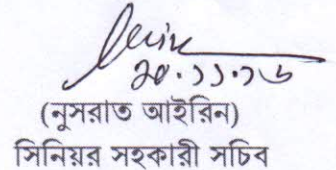 ২০.১১.১৬
(নুসরাত আইরিন)
সিনিয়র সহকারী সচিব